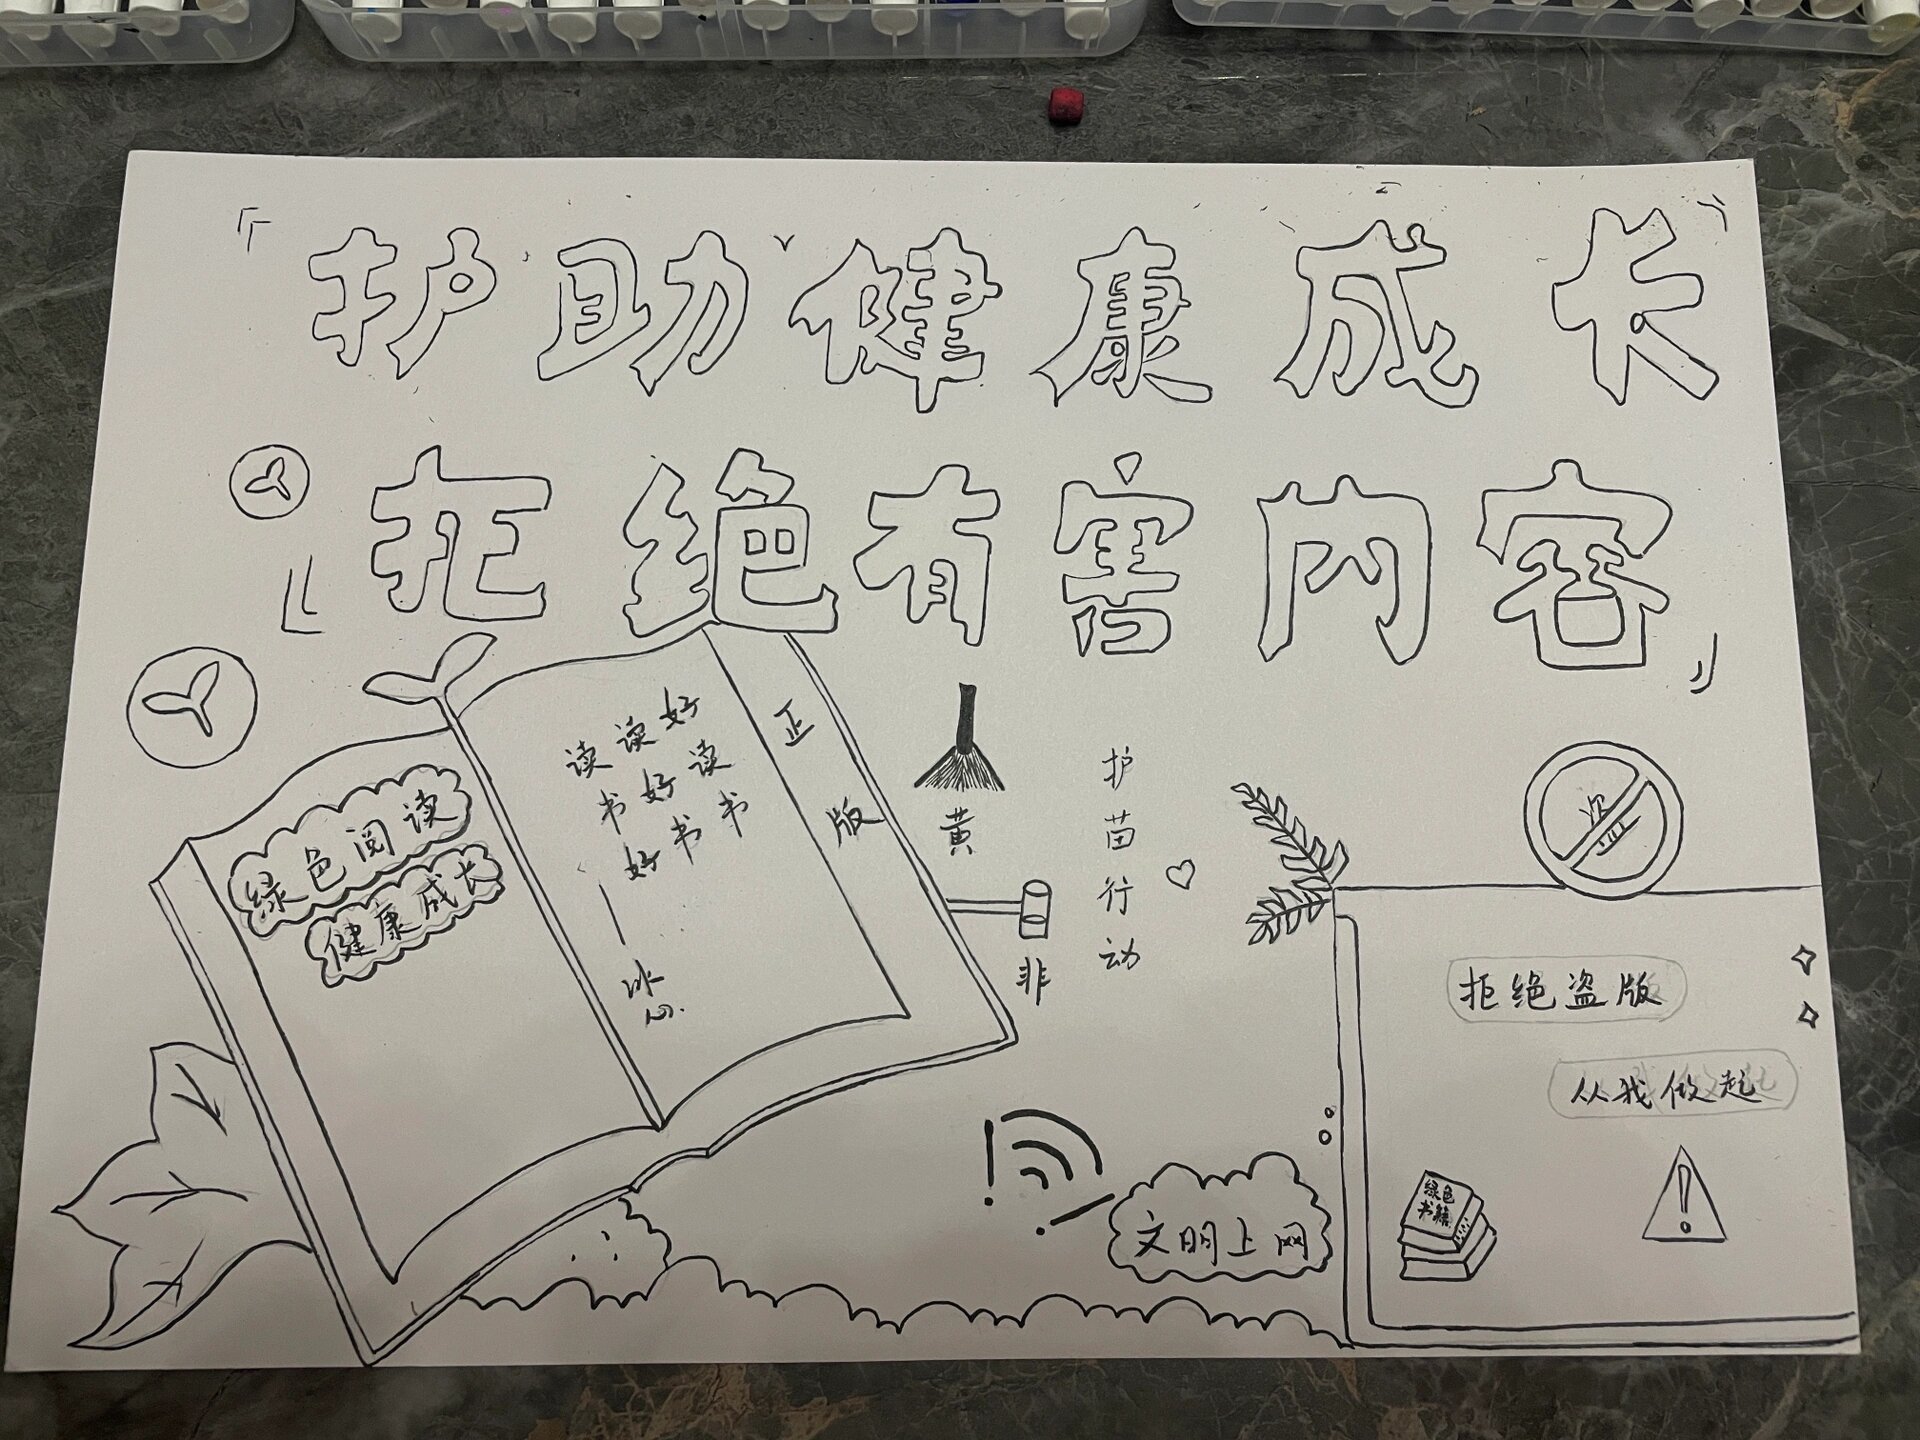 『护助健康成长
拒绝有害内容』
绿色阅读
健康成长
好读书
读好书
读书好
——冰心
正版
黄
非
护苗行动
盗
拒绝盗版
从我做起
绿色
书籍
文明上网